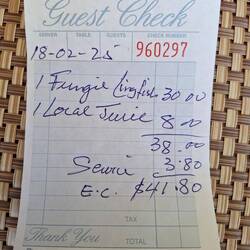 Guest Check
SERVER TABLE GUESTS CHECK NUMBER
18-02-25 960297
1 Fungie (ingfish 30.00
1 Local Juice 8.00
38.00
Servic 3.80
E.C. $41.80
TAX
Thank You TOTAL